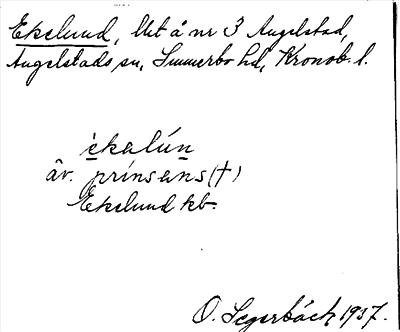 Ekelund, lht å nr 3 Angelstad,
Angelstads sn, Sunnerbo hd, Kronob. l.
èkalún
äv. prinsens (†)
Ekelund kb.
O. Segerbäck 1937.